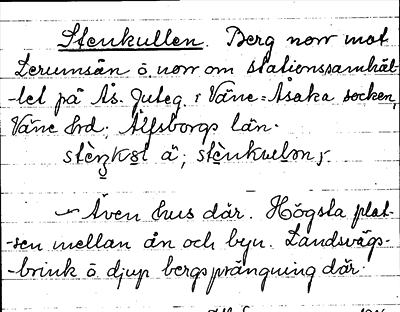 Stenkullen. Berg norr mot
Lerumsån ö. norr om stationssamhäl-
-let på Ås. Juteg. i Väne-Åsaka socken,
Väne hrd; Älfsborgs län.
ä;
- Även hus där. Högsta plat-
-sen mellan ån och byn. Landsvägs-
-brink ö djup bergsprängning där.